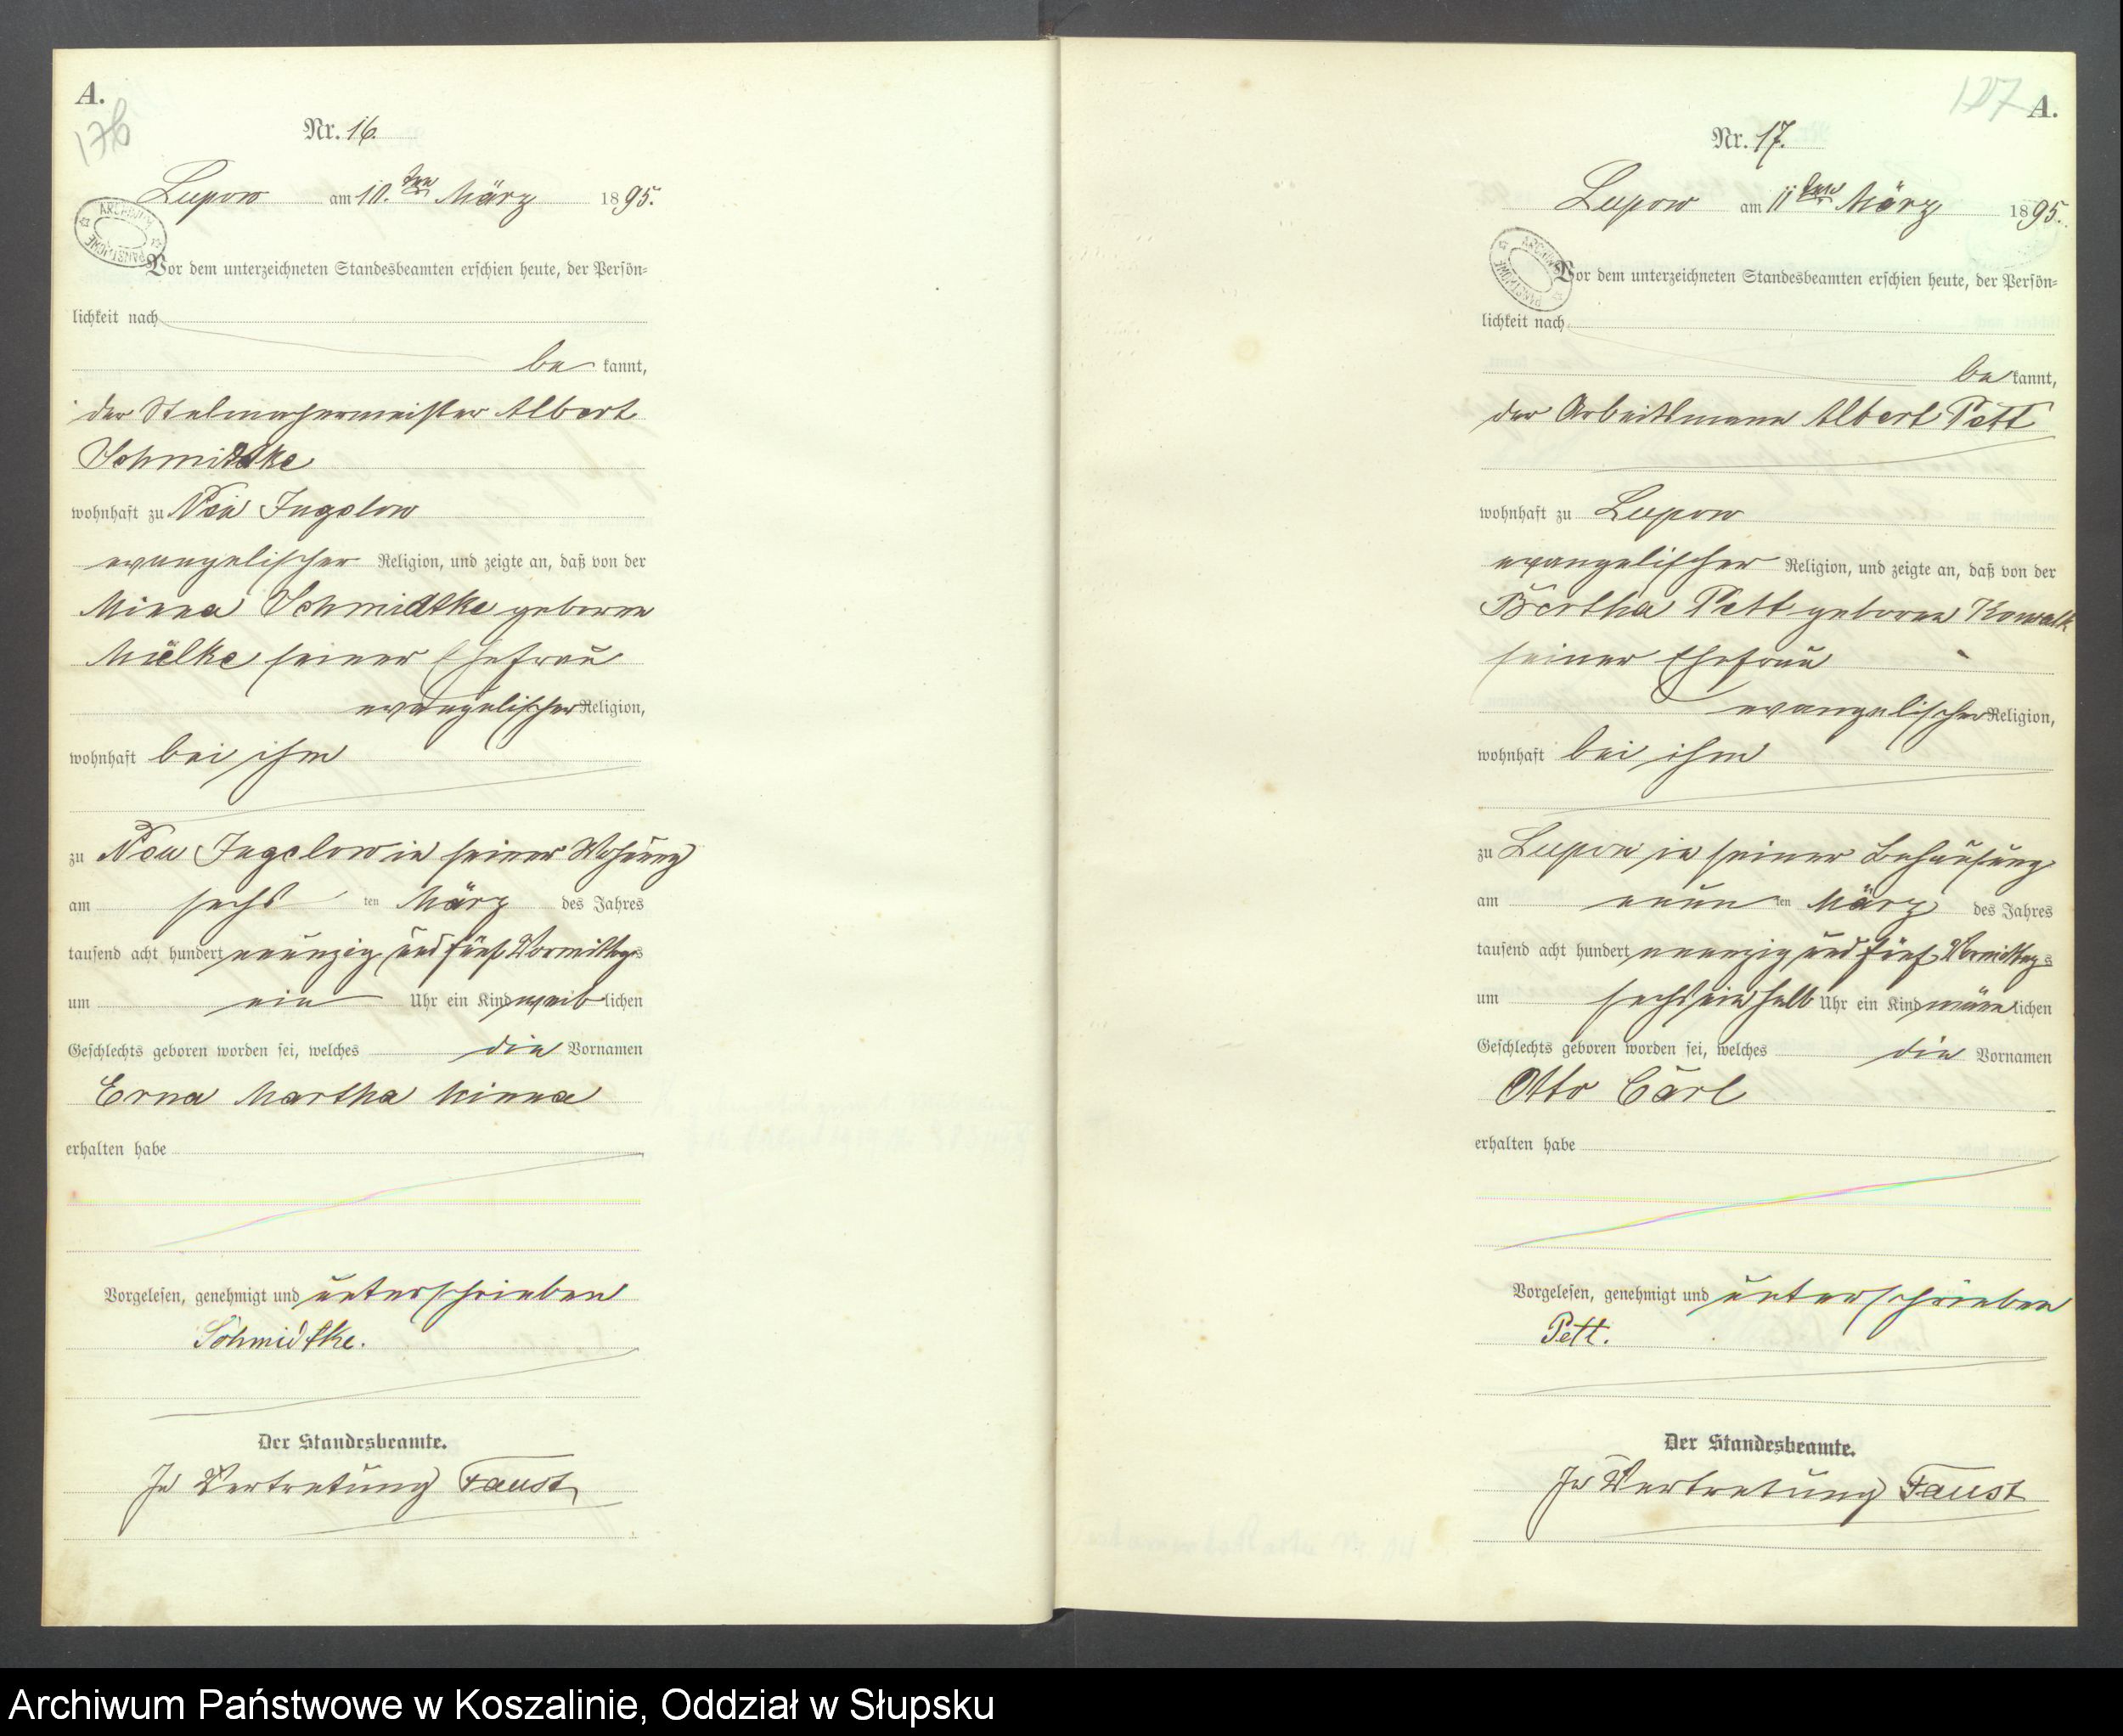 A.
176
Nr. 16.
Lupow am 10.ten März 1895.
ARCHIWUM PAŃSTWOWE
Vor dem unterzeichneten Standesbeamten erschien heute, der Persön-
lichkeit nach
be kannt,
der Stelmachermeister Albert
Schmidtke
wohnhaft zu Neu Jugelow
evangelischer Religion, und zeigte an, daß von der
Minna Schmidtke geborene
Mielke seiner Ehefrau
evangelischer Religion,
wohnhaft bei ihm
zu Neu Jugelow in seiner Wohnung
am sechs ten März des Jahres
tausend acht hundert neunzig und fünf Vormittags
um ein Uhr ein Kind weiblichen
Geschlechts geboren worden sei, welches die Vornamen
Erna Martha Minna
erhalten habe
Vorgelesen, genehmigt und unterschrieben
Schmidtke.
Der Standesbeamte.
In Vertretung Faust
A.
Nr. 17.
Lupow am 11ten März 1895.
ARCHIWUM PAŃSTWOWE
Vor dem unterzeichneten Standesbeamten erschien heute, der Persön-
lichkeit nach
be kannt,
der Arbeitsmann Albert Pett
wohnhaft zu Lupow
evangelischer Religion, und zeigte an, daß von der
Bertha Pett geborene Kowalk
seiner Ehefrau
evangelischer Religion,
wohnhaft bei ihm
zu Lupow in seiner Behausung
am neun ten März des Jahres
tausend acht hundert neunzig und fünf Vormittags
um sechseinhalb Uhr ein Kind männlichen
Geschlechts geboren worden sei, welches die Vornamen
Otto Carl
erhalten habe
Vorgelesen, genehmigt und unterschrieben
Pett.
Der Standesbeamte.
In Vertretung Faust
Archiwum Państwowe w Koszalinie, Oddział w Słupsku